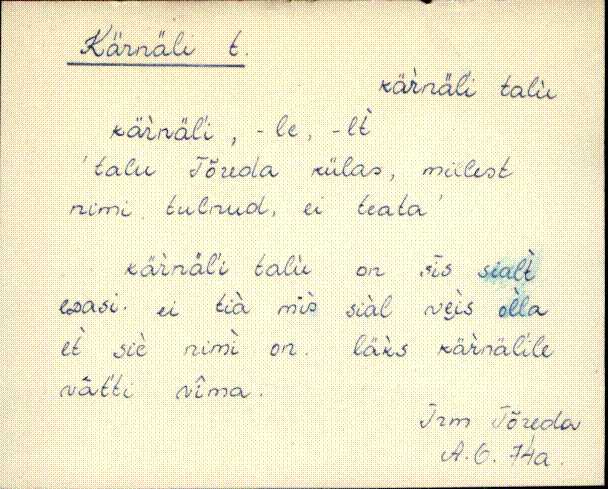 Kärnäli t.
kär̀näĺi talù
kär̀näĺi, -le, -lt̀
'talu Tõreda külas, millest
nimi tulnud, ei teata'
kär̀näĺi talù on sīs sialt̀
edasi. ei tià mìs siàl vei̬s òlla
et̀ siè nimì on. läks kär̀näĺile
vät́ti vīma.
Irm Tõreda
A.O. 74a.